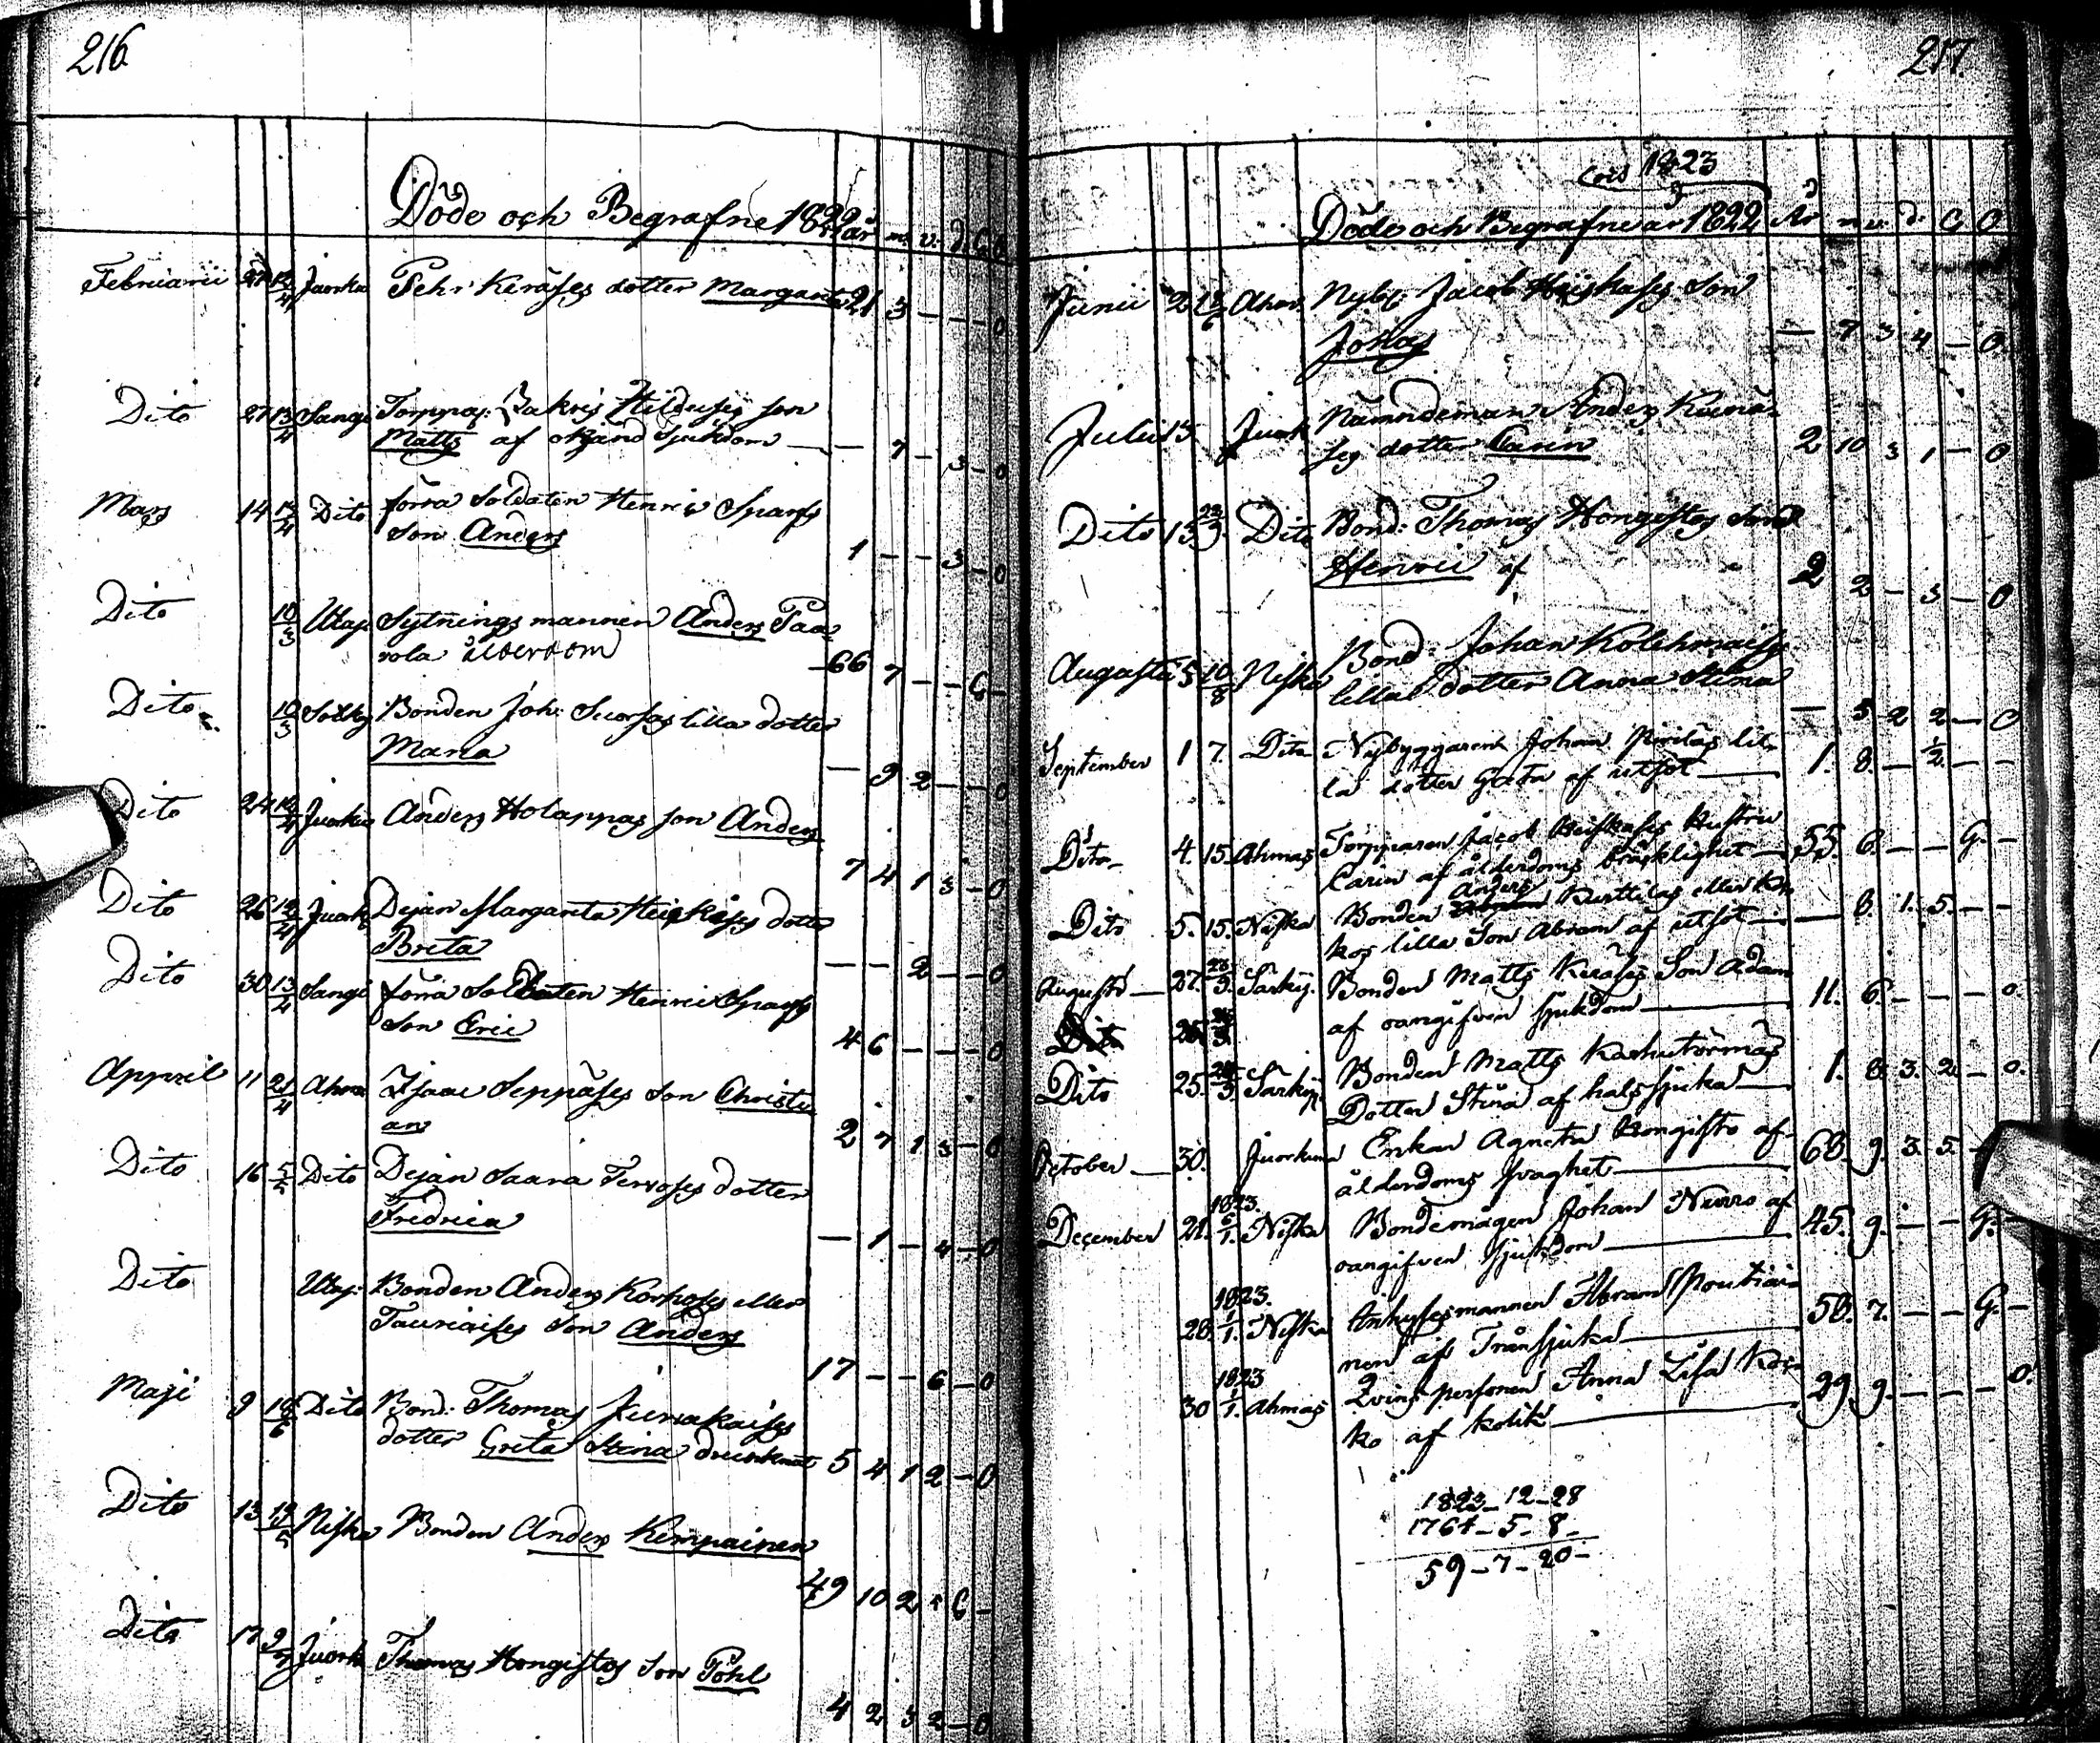 216
Döde och Begrafne 1822 år m. v. d. G O
Februarii 27 13/4 Juorku Pehr Keräses dotter Margareta 21 3 — — — 0
Dito 27 13/4 Sangi Torppa: Zakris son
Matts af okänd Sjukdom — — 7 — 3 — 0
Mars 14 13/4 Dito förra Soldaten Henric Sparfs
Son Anders 1 — — 3 — 0
Dito 10/3 Utaj: Sytningsmannen Anders Paa-
vola ålderdom 66 7 — — G —
Dito 10/3 Särky Bonden Joh: lilla dotter
Maria — 9 2 — — 0
Dito 24 Juorku Anders Holappas son Anders
7 4 1 3 — 0
Dito 26 Juork Pejan Margareta Heiskases dotter
Breta — — 2 — — 0
Dito 30 13/4 Sangi förra Soldaten Henric Sparfs
Son Eric 4 6 — — — 0
Appril 11 21/4 Ahma Isaac Seppäses Son Christi
an 2 7 1 3 — 0
Dito 16 5/5 Dito Pejan Saara Tervoses dotter
Fredrica — 1 — 4 — 0
Dito Utaj: Bonden Anders Korhoses eller
Tauriaises Son Anders
17 — — 6 — 0
Maji 9 Dito Bond: Thomas
dotter Greta Stina drunknat 5 4 1 2 — 0
Dito 13 19/5 Niska Bonden Anders Kempainen
49 10 2 G —
Dito 17 Juork Thomas Hongistos Son Påhl
4 2 3 2 — 0
217
1823
Döde och Begrafne år 1822 År m v. d. G O
Junii 2 Ahm. Nyby: Jacob Heiskases Son
Johan — 7 3 4 — 0
Julii 13 Juork Nämndeman Anders
ses dotter Carin 2 10 3 1 — 0
Dito 13 Dito Bond: Thomas Hongistos Son
Henric af 2 2 — 3 — 0
Augusti 5 10/8 Niska Bond: Johan Kolehmaises
lilla dotter Anna Stina
— 5 2 2 — 0
September 1 7. Dito Nybyggaren Johan Pirilas lil-
la dotter Greta af utsot — 1. 8. — ½ — —
Dito 4. 15. Ahmas Torpparen Jacob Heiskases Hustru
Carin af ålderdoms bräcklighet — 55. 6. — — G. —
Dito 5. 15. Niska Bonden Anders Kurttilas eller
kos lilla Son Abram af utsot — — 8. 1. 5. — —
Augusti — 27. Särky. Bonden Matts Keräses Son Adam
af oangifven sjukdom — 11. 6. — — — 0.
Dito
Dito 25. Särky. Bonden Matts Karhutörmäs
Dotter Stina af halssjuka — 1. 8. 3. 2. — 0.
October — 30. Juorkuna Enkan Agneta Hongisto af
ålderdoms svaghet — 68. 9. 3. 5.
December 21. 1823. 6/1. Niska Bondemågen Johan af
oangifven sjukdom — 45. 9. — — G. —
28. 1823. 6/1. Niska Inhysesmannen Abram Moutiai-
nen af Trånsjuka — 58. 7. — — G. —
30 1823 Ahmas personen Anna Lisa
ko af kolik — 29. 9. — — — 0.
1823 – 12 – 28
1764 – 5 – 8 –
59 – 7 – 20 –